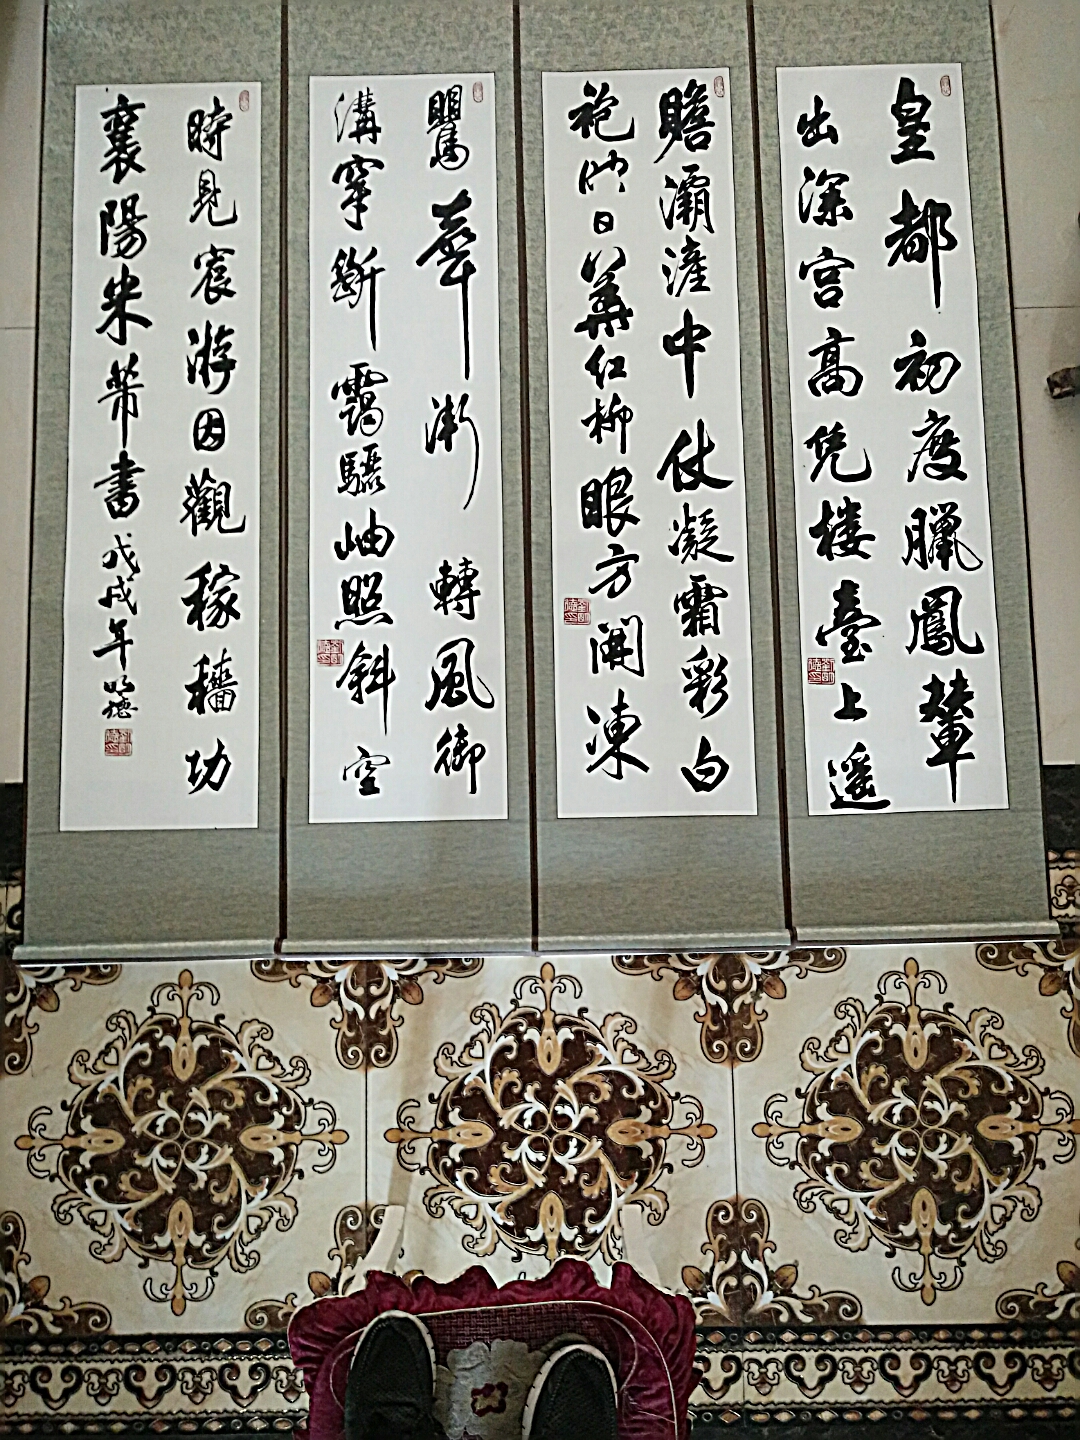 皇都初度臘鳳輦
出深宮高凭樓臺上遥
瞻灞滻中仗凝霜彩白
袍映日華紅柳眼方開凍
鸎聲漸轉風御
溝穿斷靄驪岫照斜空
時見宸游因觀稼穡功
襄陽米芾書戊戌年明德